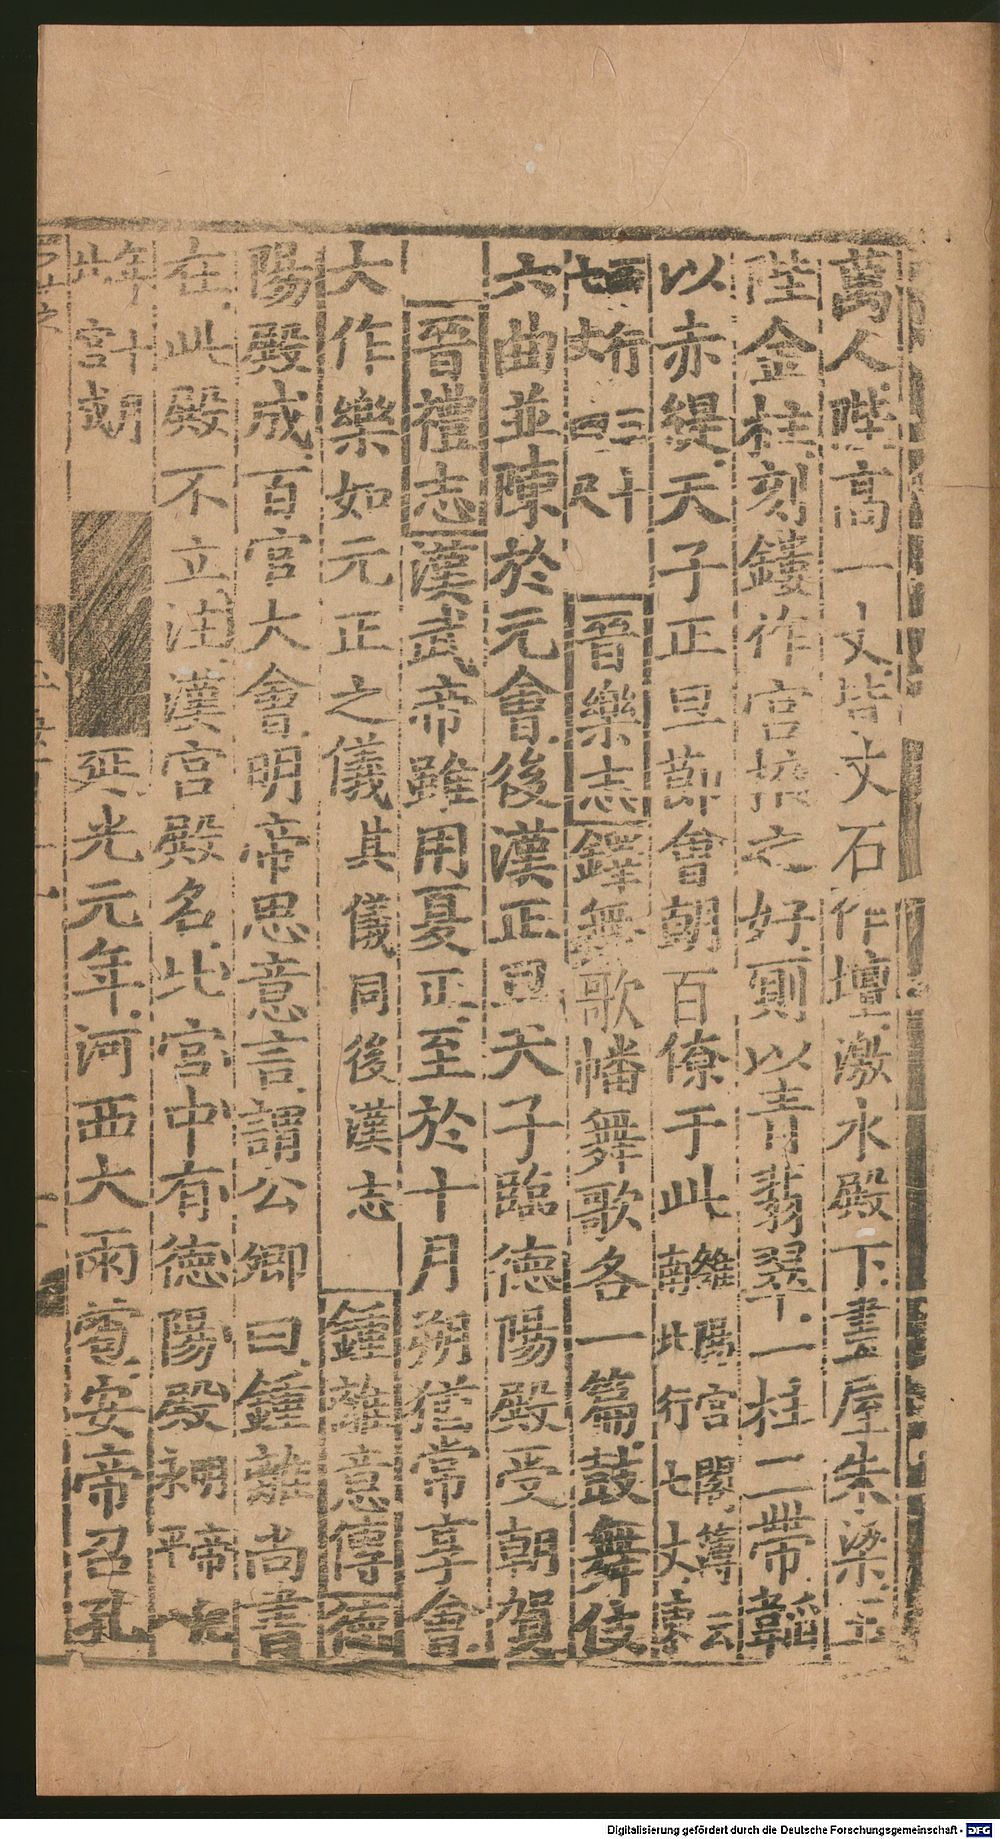 萬人陛高一丈皆文石作壇激水殿下畫屋朱梁玉
陛金柱刻鏤作宮掖之好厠以青翡翠一柱二帶韜
以赤緹天子正旦節會朝百僚于此雒陽宮閣簿云南北行七丈東
西行三十七丈四尺晉樂志鐸舞歌幡舞歌各一篇鼓舞伎
六曲並陳於元會後漢正旦天子臨德陽殿受朝賀
晉禮志漢武帝雖用夏正至於十月朔猶常享會
大作樂如元正之儀其儀同後漢志鍾離意傳德
陽殿成百官大會明帝思意言謂公卿曰鍾離尚書
在此殿不立注漢宮殿名北宮中有德陽殿
年十此宮朝延光元年河西大雨雹安帝召孔
Digitalisierung gefördert durch die Deutsche Forschungsgemeinschaft - DFG